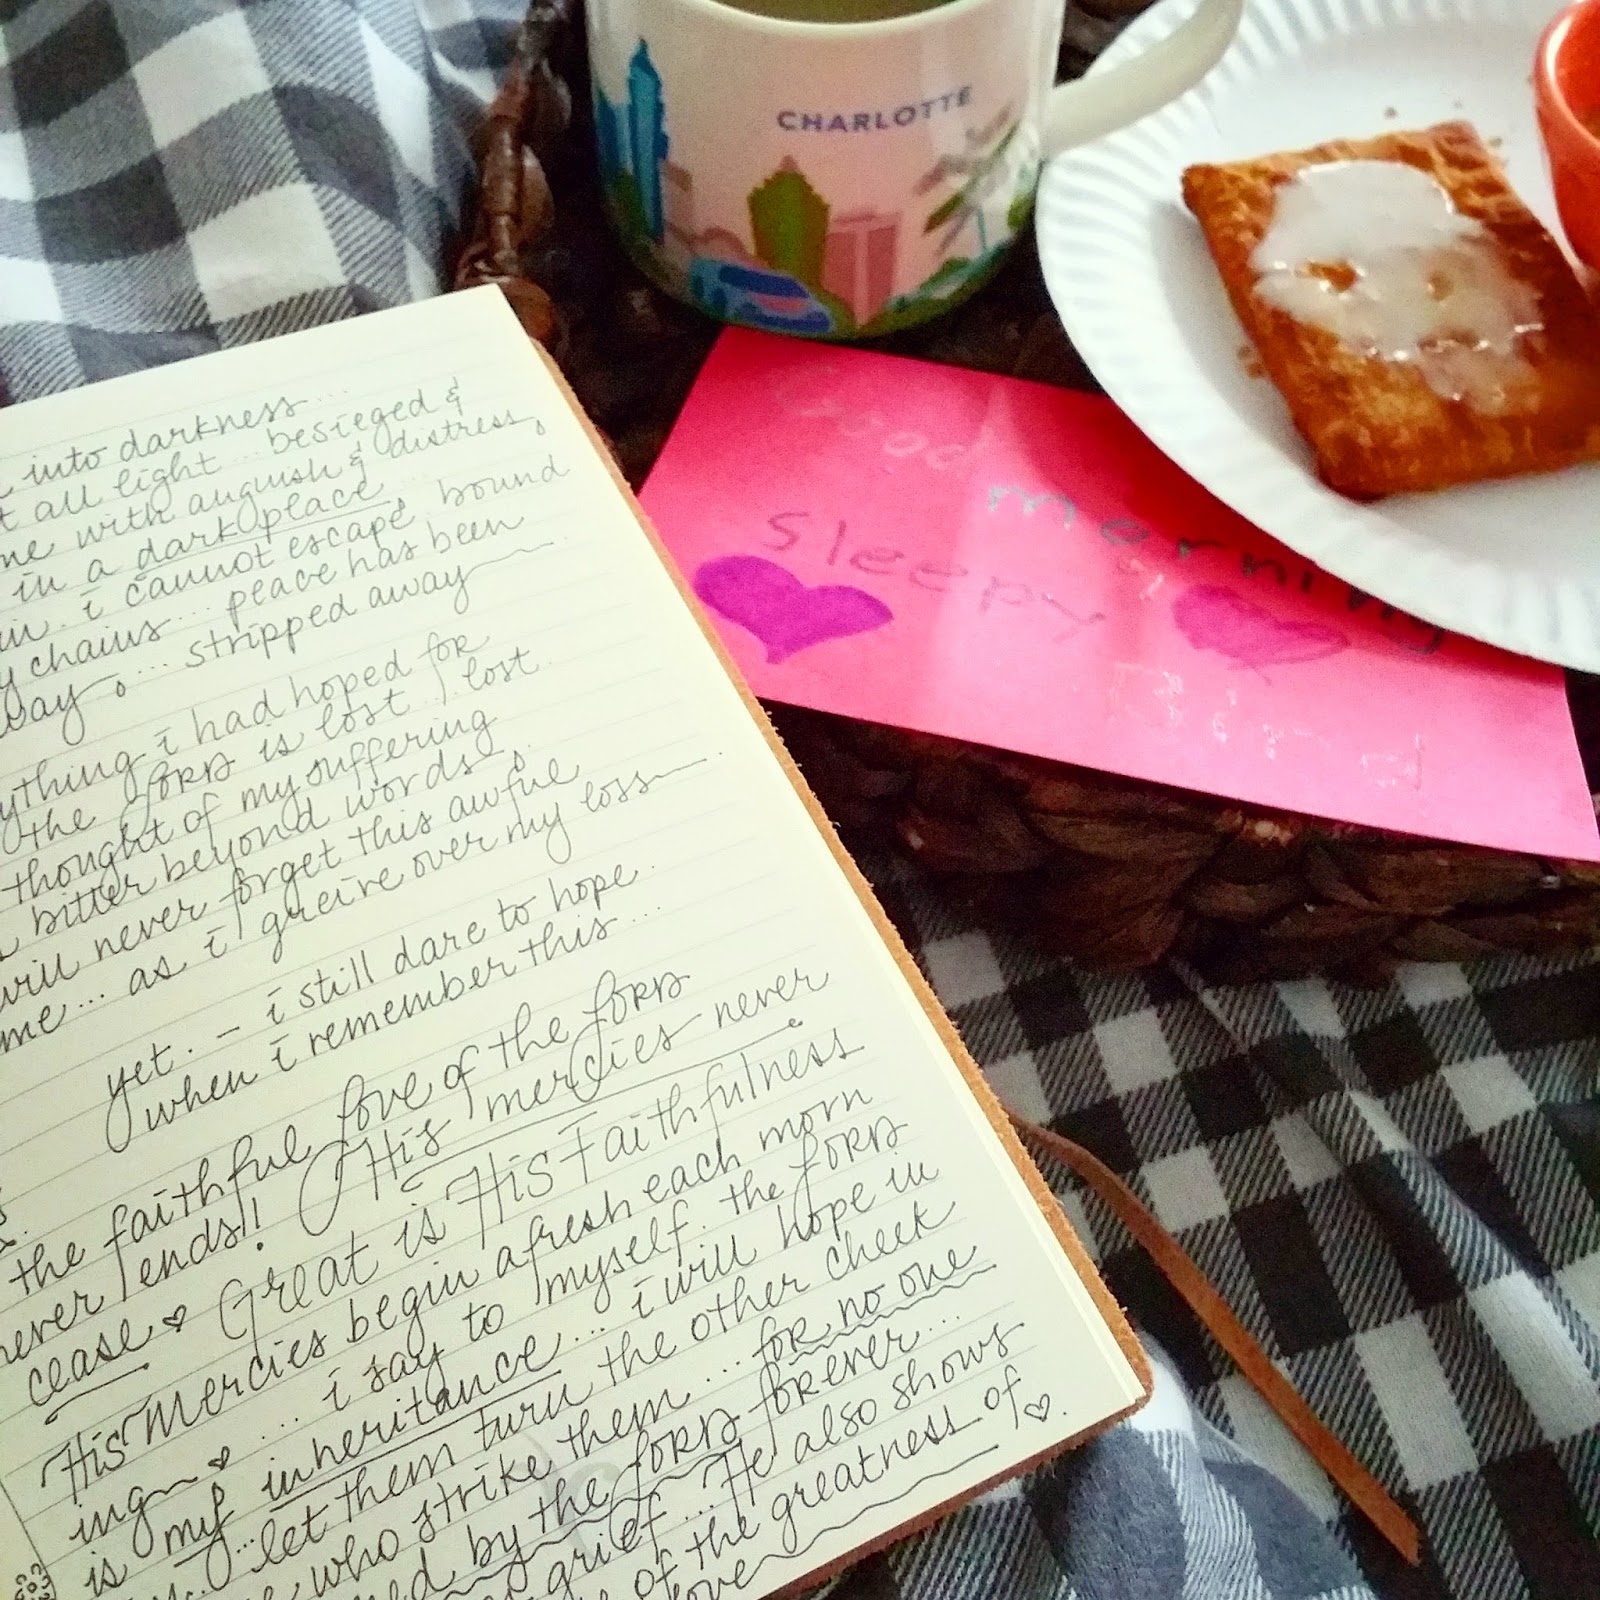 CHARLOTTE
Good
morning
Sleepy
into darkness...
all light... besieged &
me with anguish & distress,
in a dark place...
i cannot escape, bound
y chains... peace has been
way,... stripped away
ything i had hoped for
the LORD is lost... lost
thought of my suffering
bitter beyond words,
will never forget this awful
me... as i greive over my loss
yet. - i still dare to hope
when i remember this...
the faithful love of the LORD
never ends!! His mercies never
cease ♥ Great is His Faithfulness
His Mercies begin afresh each morn
ing ♥ ... i say to myself. the LORD
is my inheritance... i will hope in
let them turn the other cheek
who strike them... for no one
by the LORD forever...
grief... He also shows
of the greatness of ♥.
love